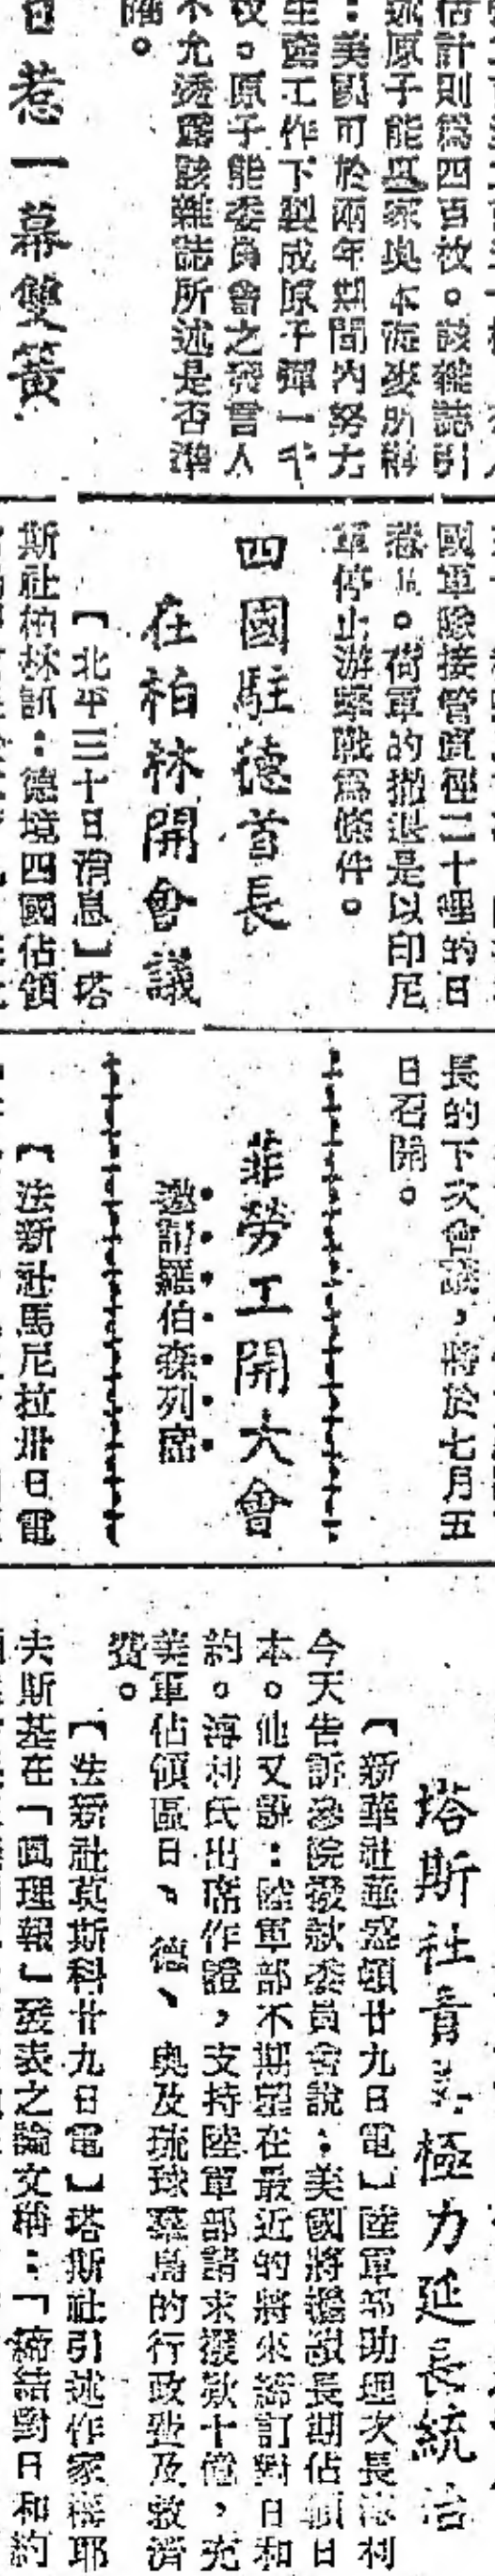 估計則爲四百枚。該雜誌引
述原子能專家奧本海麥所稱
：美國可於兩年期間內努力
生產工作下製成原子彈一千
枚。原子能委員會之發言人
不允透露該雜誌所述是否準
確。
惹一幕雙簧
國軍隊接管直徑二十哩的日
惹區。荷軍的撤退是以印尼
軍停止游擊戰爲條件。
四國駐德首長
在柏林開會議
【北平三十日消息】塔
斯社柏林訊：德境四國佔領
長的下次會議，將於七月五
日召開。
菲勞工開大會
邀請羅伯森列席
【法新社馬尼拉卅日電
塔斯社責美極力延長統治
【新華社華盛頓廿九日電】陸軍部助理次長海利
今天告訴參院撥款委員會說：美國將擬議長期佔領日
本。他又說：陸軍部不期望在最近的將來締訂對日和
約。海利氏出席作證，支持陸軍部請求撥款十億，充
美軍佔領區日、德、奧及琉球羣島的行政費及救濟
費。
【法新社莫斯科廿九日電】塔斯社引述作家耶
夫斯基在「眞理報」發表之論文稱：「締結對日和約